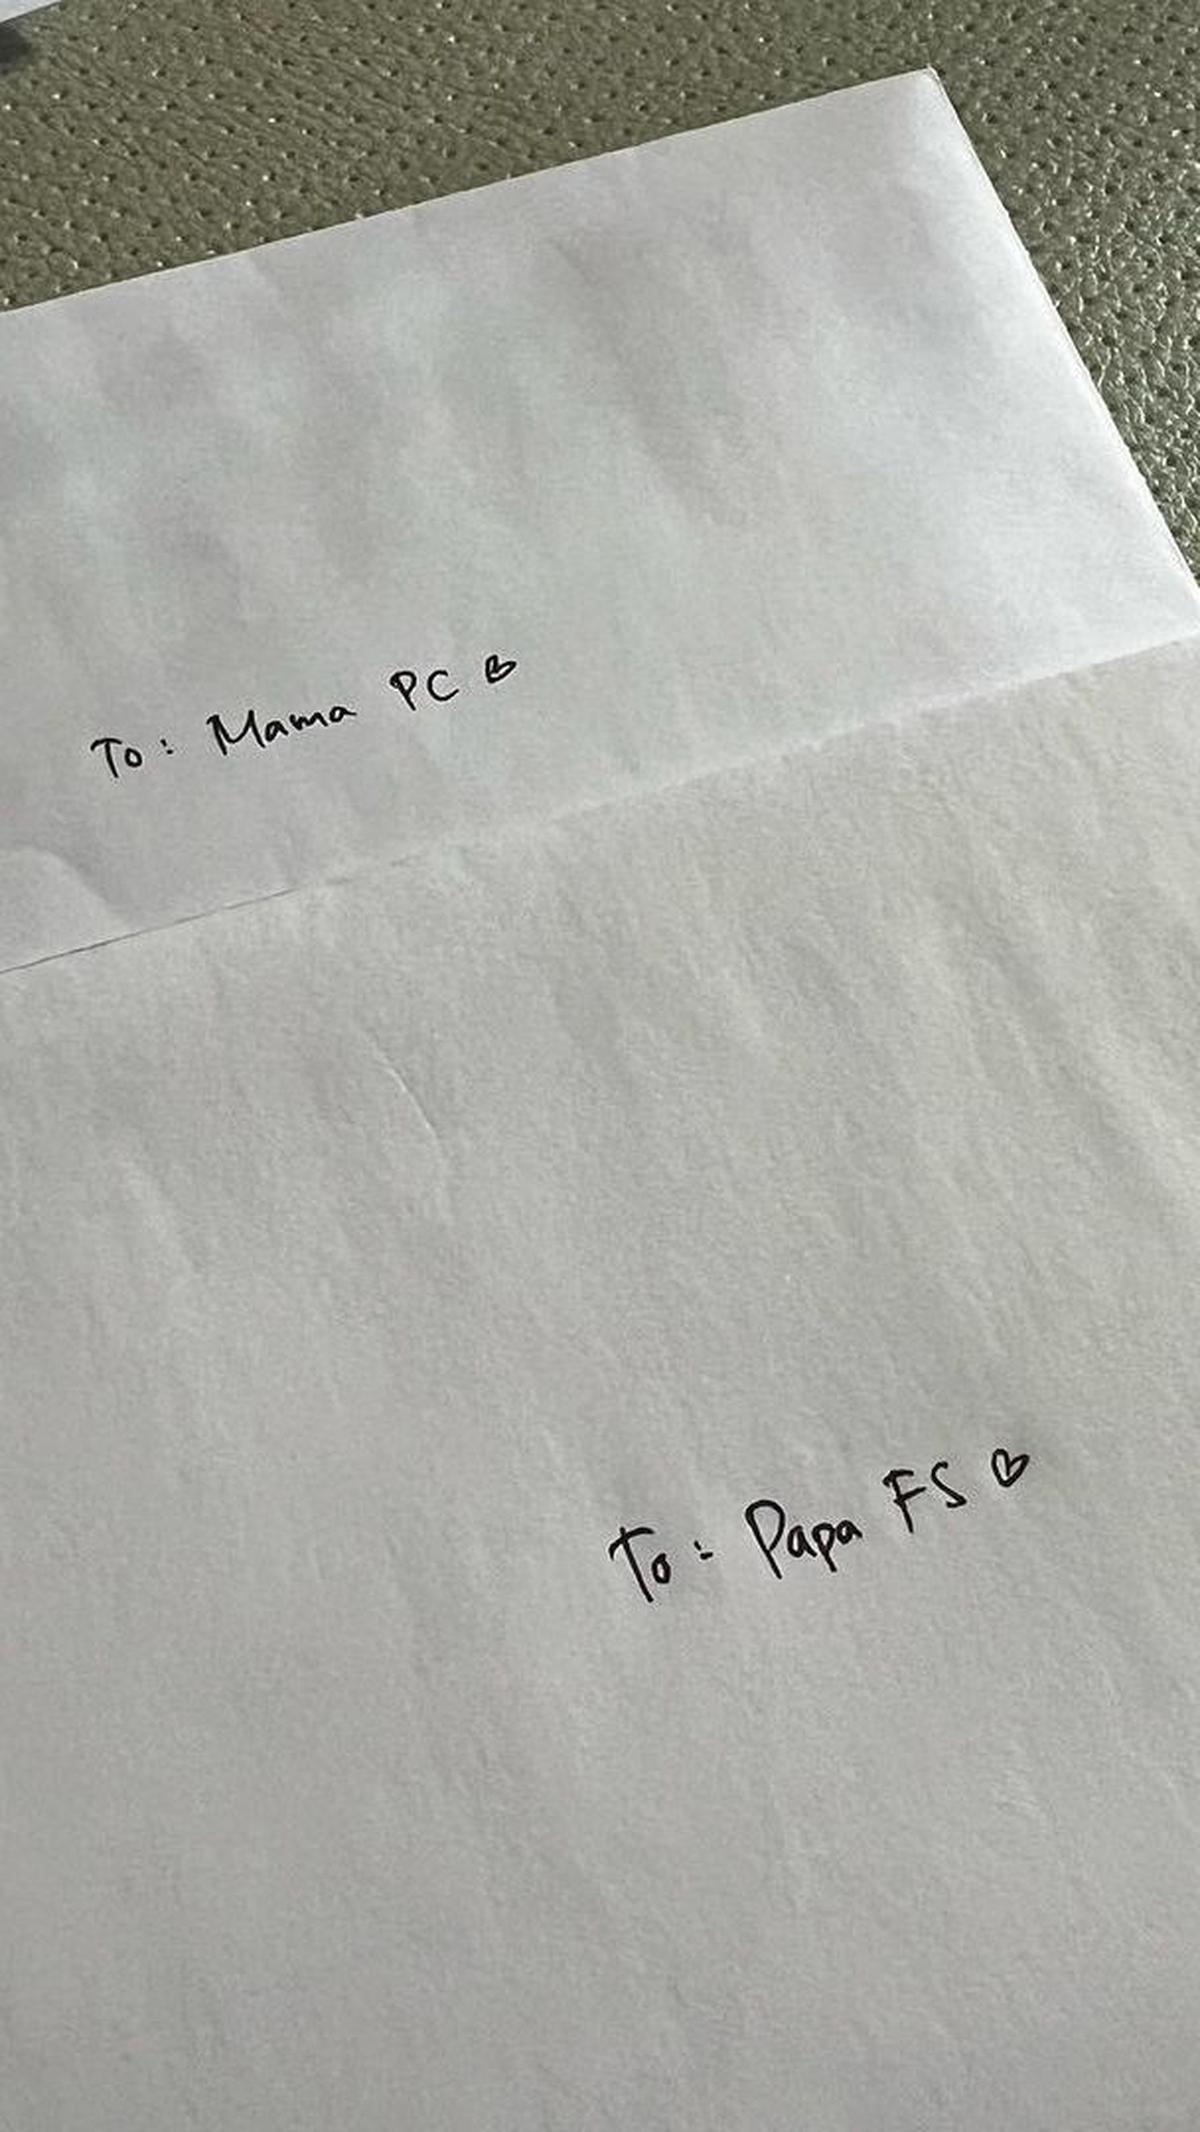 To: Mama PC ♡
To: Papa FS ♡